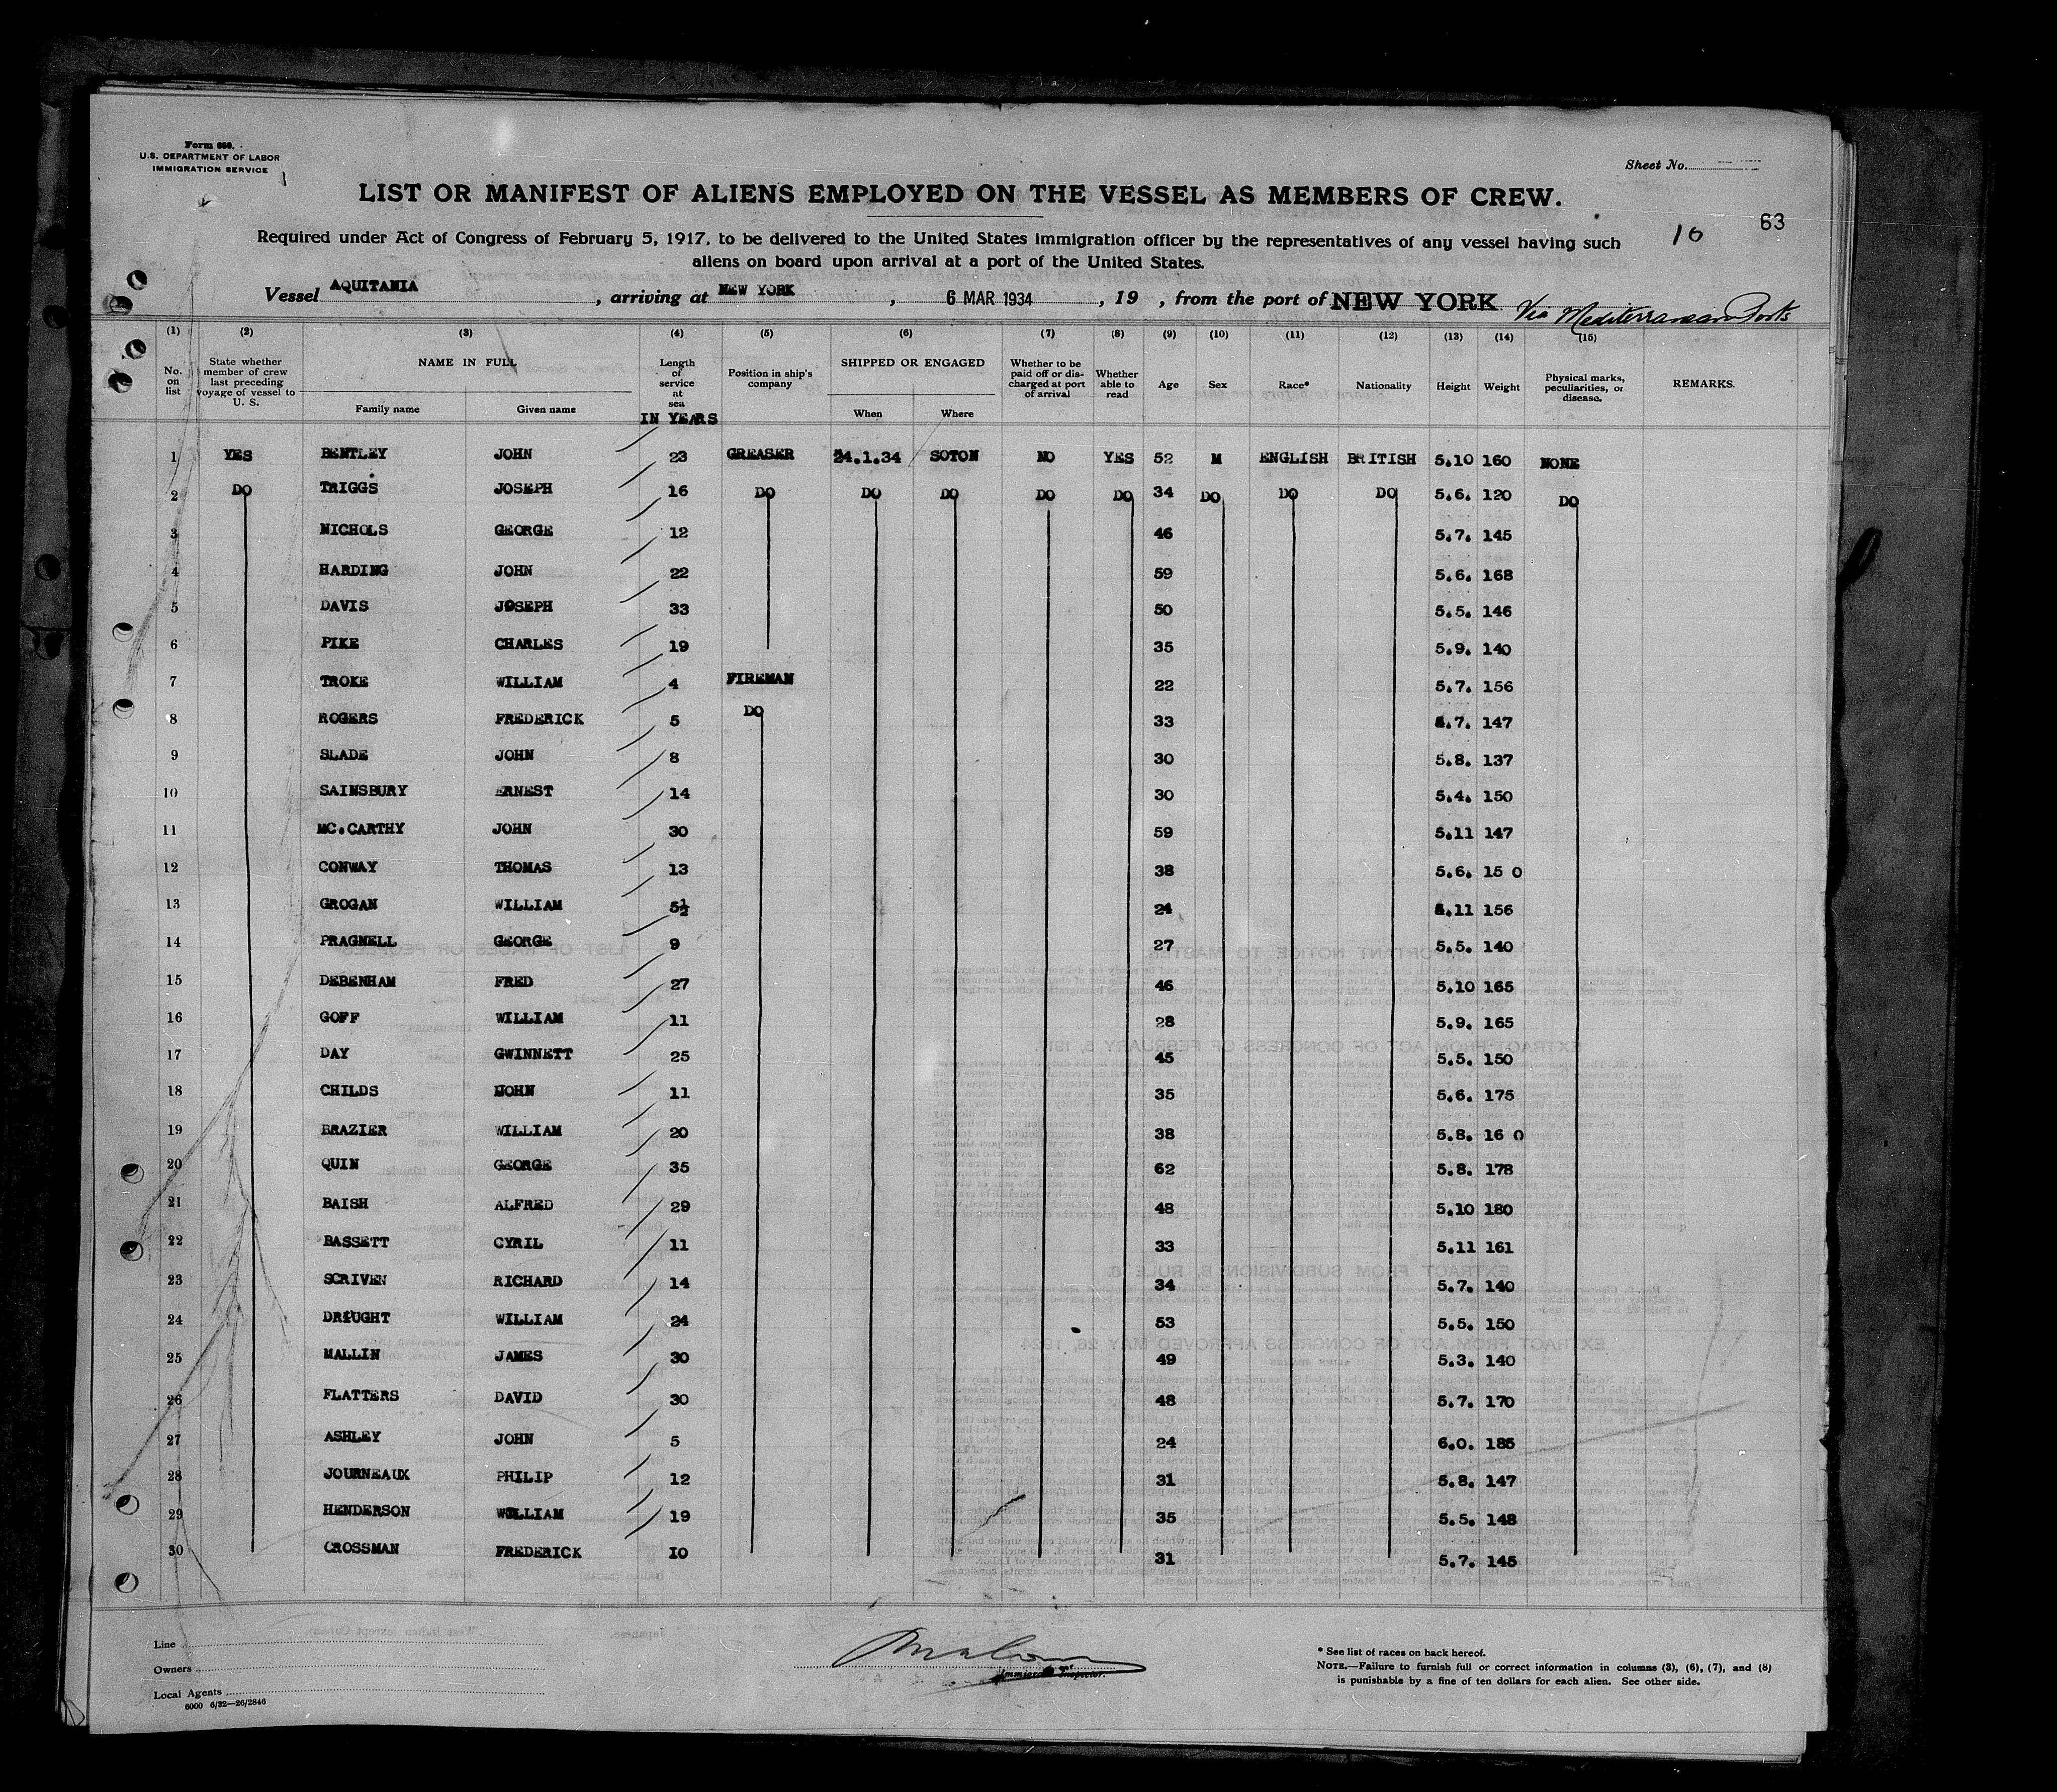 Form 680.
U.S. DEPARTMENT OF LABOR
IMMIGRATION SERVICE
Sheet No.
LIST OR MANIFEST OF ALIENS EMPLOYED ON THE VESSEL AS MEMBERS OF CREW.
10 63
Required under Act of Congress of February 5, 1917, to be delivered to the United States immigration officer by the representatives of any vessel having such
aliens on board upon arrival at a port of the United States.
Vessel AQUITANIA, arriving at NEW YORK, 6 MAR 1934, 19 , from the port of NEW YORK Via Mediterranean Ports
(1) (2) (3) (4) (5) (6) (7) (8) (9) (10) (11) (12) (13) (14) (15)
No. on list State whether member of crew last preceding voyage of vessel to U. S. NAME IN FULL Family name Given name Length of service at sea IN YEARS Position in ship's company SHIPPED OR ENGAGED When Where Whether to be paid off or discharged at port of arrival Whether able to read Age Sex Race* Nationality Height Weight Physical marks, peculiarities, or disease. REMARKS.
1 YES BENTLEY JOHN 23 GREASER 24.1.34 SOTON NO YES 52 M ENGLISH BRITISH 5.10 160 NONE
2 DO TRIGGS JOSEPH 16 DO DO DO DO DO 34 DO DO DO 5.6. 120 DO
3 NICHOLS GEORGE 12 46 5.7. 145
4 HARDING JOHN 22 59 5.6. 168
5 DAVIS JOSEPH 33 50 5.5. 146
6 PIKE CHARLES 19 35 5.9. 140
7 TROKE WILLIAM 4 FIREMAN 22 5.7. 156
8 ROGERS FREDERICK 5 DO 33 5.7. 147
9 SLADE JOHN 8 30 5.8. 137
10 SAINSBURY ERNEST 14 30 5.4. 150
11 MC.CARTHY JOHN 30 59 5.11 147
12 CONWAY THOMAS 13 38 5.6. 15 0
13 GROGAN WILLIAM 5½ 24 5.11 156
14 PRAGNELL GEORGE 9 27 5.5. 140
15 DEBENHAM FRED 27 46 5.10 165
16 GOFF WILLIAM 11 28 5.9. 165
17 DAY GWINNETT 25 45 5.5. 150
18 CHILDS JOHN 11 35 5.6. 175
19 BRAZIER WILLIAM 20 38 5.8. 16 0
20 QUIN GEORGE 35 62 5.8. 178
21 BAISH ALFRED 29 48 5.10 180
22 BASSETT CYRIL 11 33 5.11 161
23 SCRIVEN RICHARD 14 34 5.7. 140
24 DRAUGHT WILLIAM 24 53 5.5. 150
25 MALLIN JAMES 30 49 5.3. 140
26 FLATTERS DAVID 30 48 5.7. 170
27 ASHLEY JOHN 5 24 6.0. 185
28 JOURNEAUX PHILIP 12 31 5.8. 147
29 HENDERSON WILLIAM 19 35 5.5. 148
30 CROSSMAN FREDERICK 10 31 5.7. 145
Line
Owners
Local Agents
6000 6/32—26/2846
Immigrant Inspector.
* See list of races on back hereof.
NOTE.—Failure to furnish full or correct information in columns (3), (6), (7), and (8)
is punishable by a fine of ten dollars for each alien. See other side.